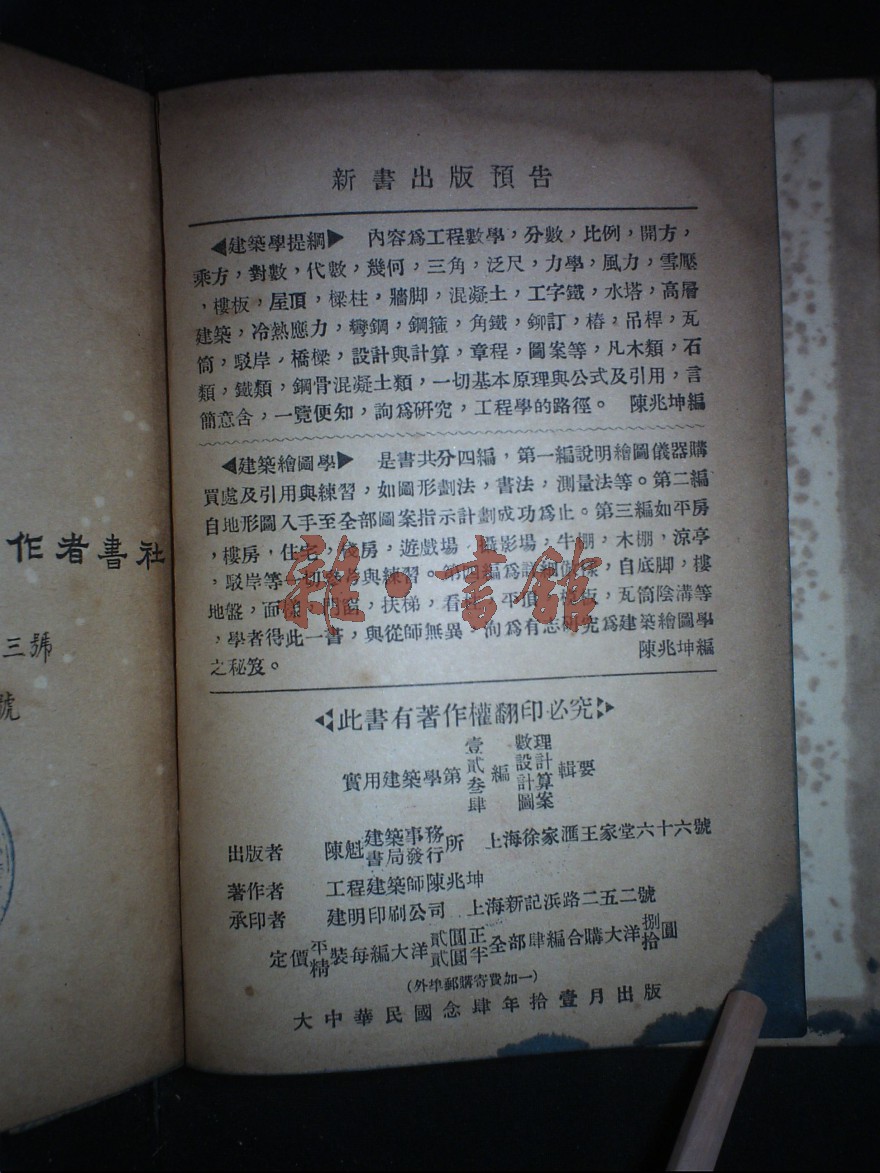 新書出版預告
◀建築學提綱▶　內容爲工程數學，分數，比例，開方，
乘方，對數，代數，幾何，三角，泛尺，力學，風力，雪壓
，樓板，屋頂，樑柱，牆脚，混凝土，工字鐵，水塔，高層
建築，冷熱應力，彎鋼，鋼箍，角鐵，鉚訂，樁，吊桿，瓦
筒，駁岸，橋樑，設計與計算，章程，圖案等，凡木類，石
類，鐵類，鋼骨混凝土類，一切基本原理與公式及引用，言
簡意含，一覽便知，詢爲研究，工程學的路徑。　陳兆坤編
◀建築繪圖學▶　是書共分四編，第一編說明繪圖儀器購
買處及引用與練習，如圖形劃法，書法，測量法等。第二編
自地形圖入手至全部圖案指示計劃成功爲止。第三編如平房
，樓房，住宅，房，遊戲場，攝影場，牛棚，木棚，涼亭
，駁岸等一切參考與練習。第四編爲詳細樣，自底脚，樓
地盤，面樣，門窗，扶梯，看，平頂，板，瓦筒陰溝等
，學者得此一書，與從師無異，洵爲有志研究爲建築繪圖學
之秘笈。　陳兆坤編
此書有著作權翻印必究
實用建築學第壹貳叁肆編 數理 設計 計算 圖案 輯要
出版者　陳魁建築事務書局發行所　上海徐家滙王家堂六十六號
著作者　工程建築師陳兆坤
承印者　建明印刷公司　上海新記浜路二五二號
定價平精裝每編大洋貳圓正貳圓半全部肆編合購大洋捌拾圓
（外埠郵購寄費加一）
大中華民國念肆年拾壹月出版
作者書社
三號
號
雜·書館